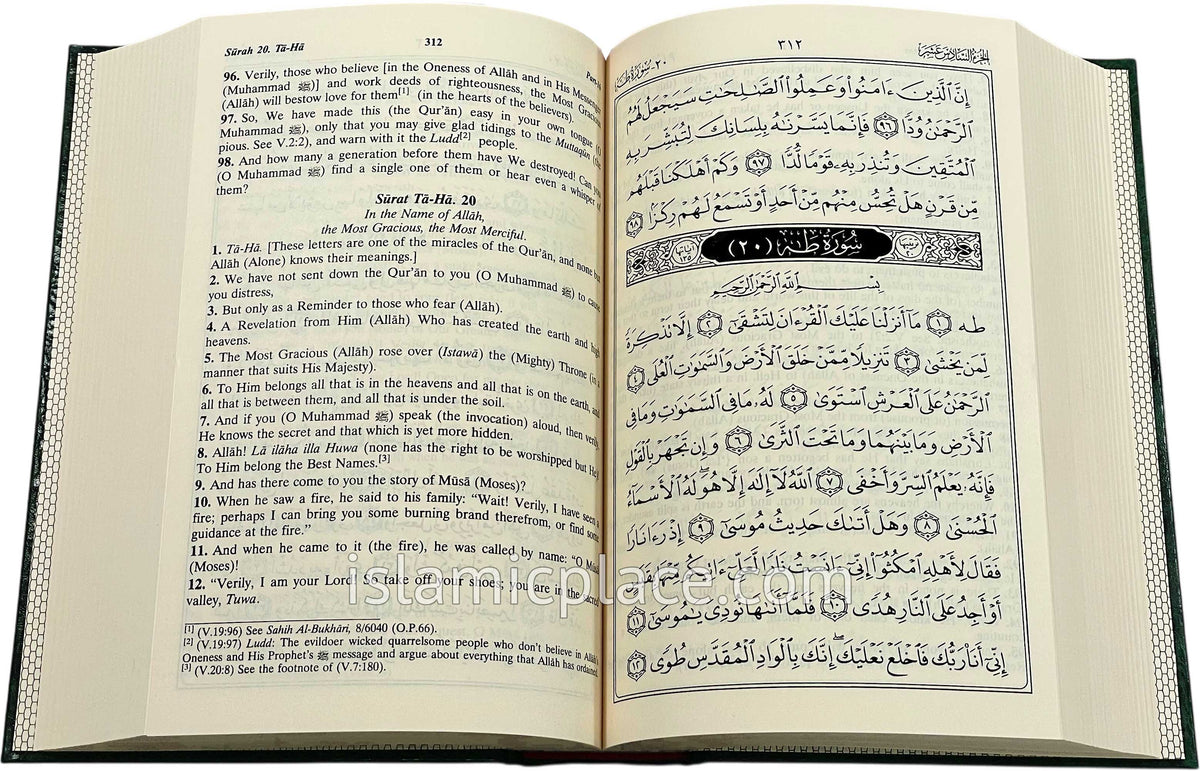 Sūrah 20. Tā-Hā
312
96. Verily, those who believe [in the Oneness of Allāh and in His Messenger
(Muhammad ﷺ)] and work deeds of righteousness, the Most Gracious
(Allāh) will bestow love for them[1] (in the hearts of the believers).
97. So, We have made this (the Qur’ān) easy in your own tongue (O
Muhammad ﷺ), only that you may give glad tidings to the Muttaqūn (the
pious. See V.2:2), and warn with it the Ludd[2] people.
98. And how many a generation before them have We destroyed! Can you
(O Muhammad ﷺ) find a single one of them or hear even a whisper of
them?
Sūrat Tā-Hā. 20
In the Name of Allāh,
the Most Gracious, the Most Merciful.
1. Tā-Hā. [These letters are one of the miracles of the Qur’ān, and none but
Allāh (Alone) knows their meanings.]
2. We have not sent down the Qur’ān to you (O Muhammad ﷺ) to cause
you distress,
3. But only as a Reminder to those who fear (Allāh).
4. A Revelation from Him (Allāh) Who has created the earth and high
heavens.
5. The Most Gracious (Allāh) rose over (Istawā) the (Mighty) Throne (in a
manner that suits His Majesty).
6. To Him belongs all that is in the heavens and all that is on the earth, and
all that is between them, and all that is under the soil.
7. And if you (O Muhammad ﷺ) speak (the invocation) aloud, then verily,
He knows the secret and that which is yet more hidden.
8. Allāh! Lā ilāha illa Huwa (none has the right to be worshipped but He)!
To Him belong the Best Names.[3]
9. And has there come to you the story of Mūsā (Moses)?
10. When he saw a fire, he said to his family: “Wait! Verily, I have seen a
fire; perhaps I can bring you some burning brand therefrom, or find some
guidance at the fire.”
11. And when he came to it (the fire), he was called by name: “O Mūsā
(Moses)!
12. “Verily, I am your Lord! So take off your shoes; you are in the sacred
valley, Tuwa.
[1] (V.19:96) See Sahih Al-Bukhāri, 8/6040 (O.P.66).
[2] (V.19:97) Ludd: The evildoer wicked quarrelsome people who don’t believe in Allāh’s
Oneness and His Prophet’s ﷺ message and argue about everything that Allāh has ordained.
[3] (V.20:8) See the footnote of (V.7:180).
الجزء السادس عشر
٣١٢
٢٠- سورة طه
إِنَّ ٱلَّذِينَ ءَامَنُوا۟ وَعَمِلُوا۟ ٱلصَّـٰلِحَـٰتِ سَيَجْعَلُ لَهُمُ
ٱلرَّحْمَـٰنُ وُدًّا ٩٦ فَإِنَّمَا يَسَّرْنَـٰهُ بِلِسَانِكَ لِتُبَشِّرَ بِهِ
ٱلْمُتَّقِينَ وَتُنذِرَ بِهِۦ قَوْمًا لُّدًّا ٩٧ وَكَمْ أَهْلَكْنَا قَبْلَهُم
مِّن قَرْنٍ هَلْ تُحِسُّ مِنْهُم مِّنْ أَحَدٍ أَوْ تَسْمَعُ لَهُمْ رِكْزًۢا ٩٨
سُورَةُ طه (٢٠)
بِسْمِ ٱللَّهِ ٱلرَّحْمَـٰنِ ٱلرَّحِيمِ
طه ١ مَآ أَنزَلْنَا عَلَيْكَ ٱلْقُرْءَانَ لِتَشْقَىٰٓ ٢ إِلَّا تَذْكِرَةً
لِّمَن يَخْشَىٰ ٣ تَنزِيلًا مِّمَّنْ خَلَقَ ٱلْأَرْضَ وَٱلسَّمَـٰوَٰتِ ٱلْعُلَى ٤
ٱلرَّحْمَـٰنُ عَلَى ٱلْعَرْشِ ٱسْتَوَىٰ ٥ لَهُۥ مَا فِى ٱلسَّمَـٰوَٰتِ وَمَا فِى
ٱلْأَرْضِ وَمَا بَيْنَهُمَا وَمَا تَحْتَ ٱلثَّرَىٰ ٦ وَإِن تَجْهَرْ بِٱلْقَوْلِ
فَإِنَّهُۥ يَعْلَمُ ٱلسِّرَّ وَأَخْفَى ٧ ٱللَّهُ لَآ إِلَـٰهَ إِلَّا هُوَ لَهُ ٱلْأَسْمَآءُ
ٱلْحُسْنَىٰ ٨ وَهَلْ أَتَىٰكَ حَدِيثُ مُوسَىٰٓ ٩ إِذْ رَءَا نَارًا
فَقَالَ لِأَهْلِهِ ٱمْكُثُوٓا۟ إِنِّىٓ ءَانَسْتُ نَارًا لَّعَلِّىٓ ءَاتِيكُم مِّنْهَا بِقَبَسٍ
أَوْ أَجِدُ عَلَى ٱلنَّارِ هُدًى ١٠ فَلَمَّآ أَتَىٰهَا نُودِىَ يَـٰمُوسَىٰٓ ١١
إِنِّىٓ أَنَا۠ رَبُّكَ فَٱخْلَعْ نَعْلَيْكَ إِنَّكَ بِٱلْوَادِ ٱلْمُقَدَّسِ طُوًى ١٢
islamicplace.com